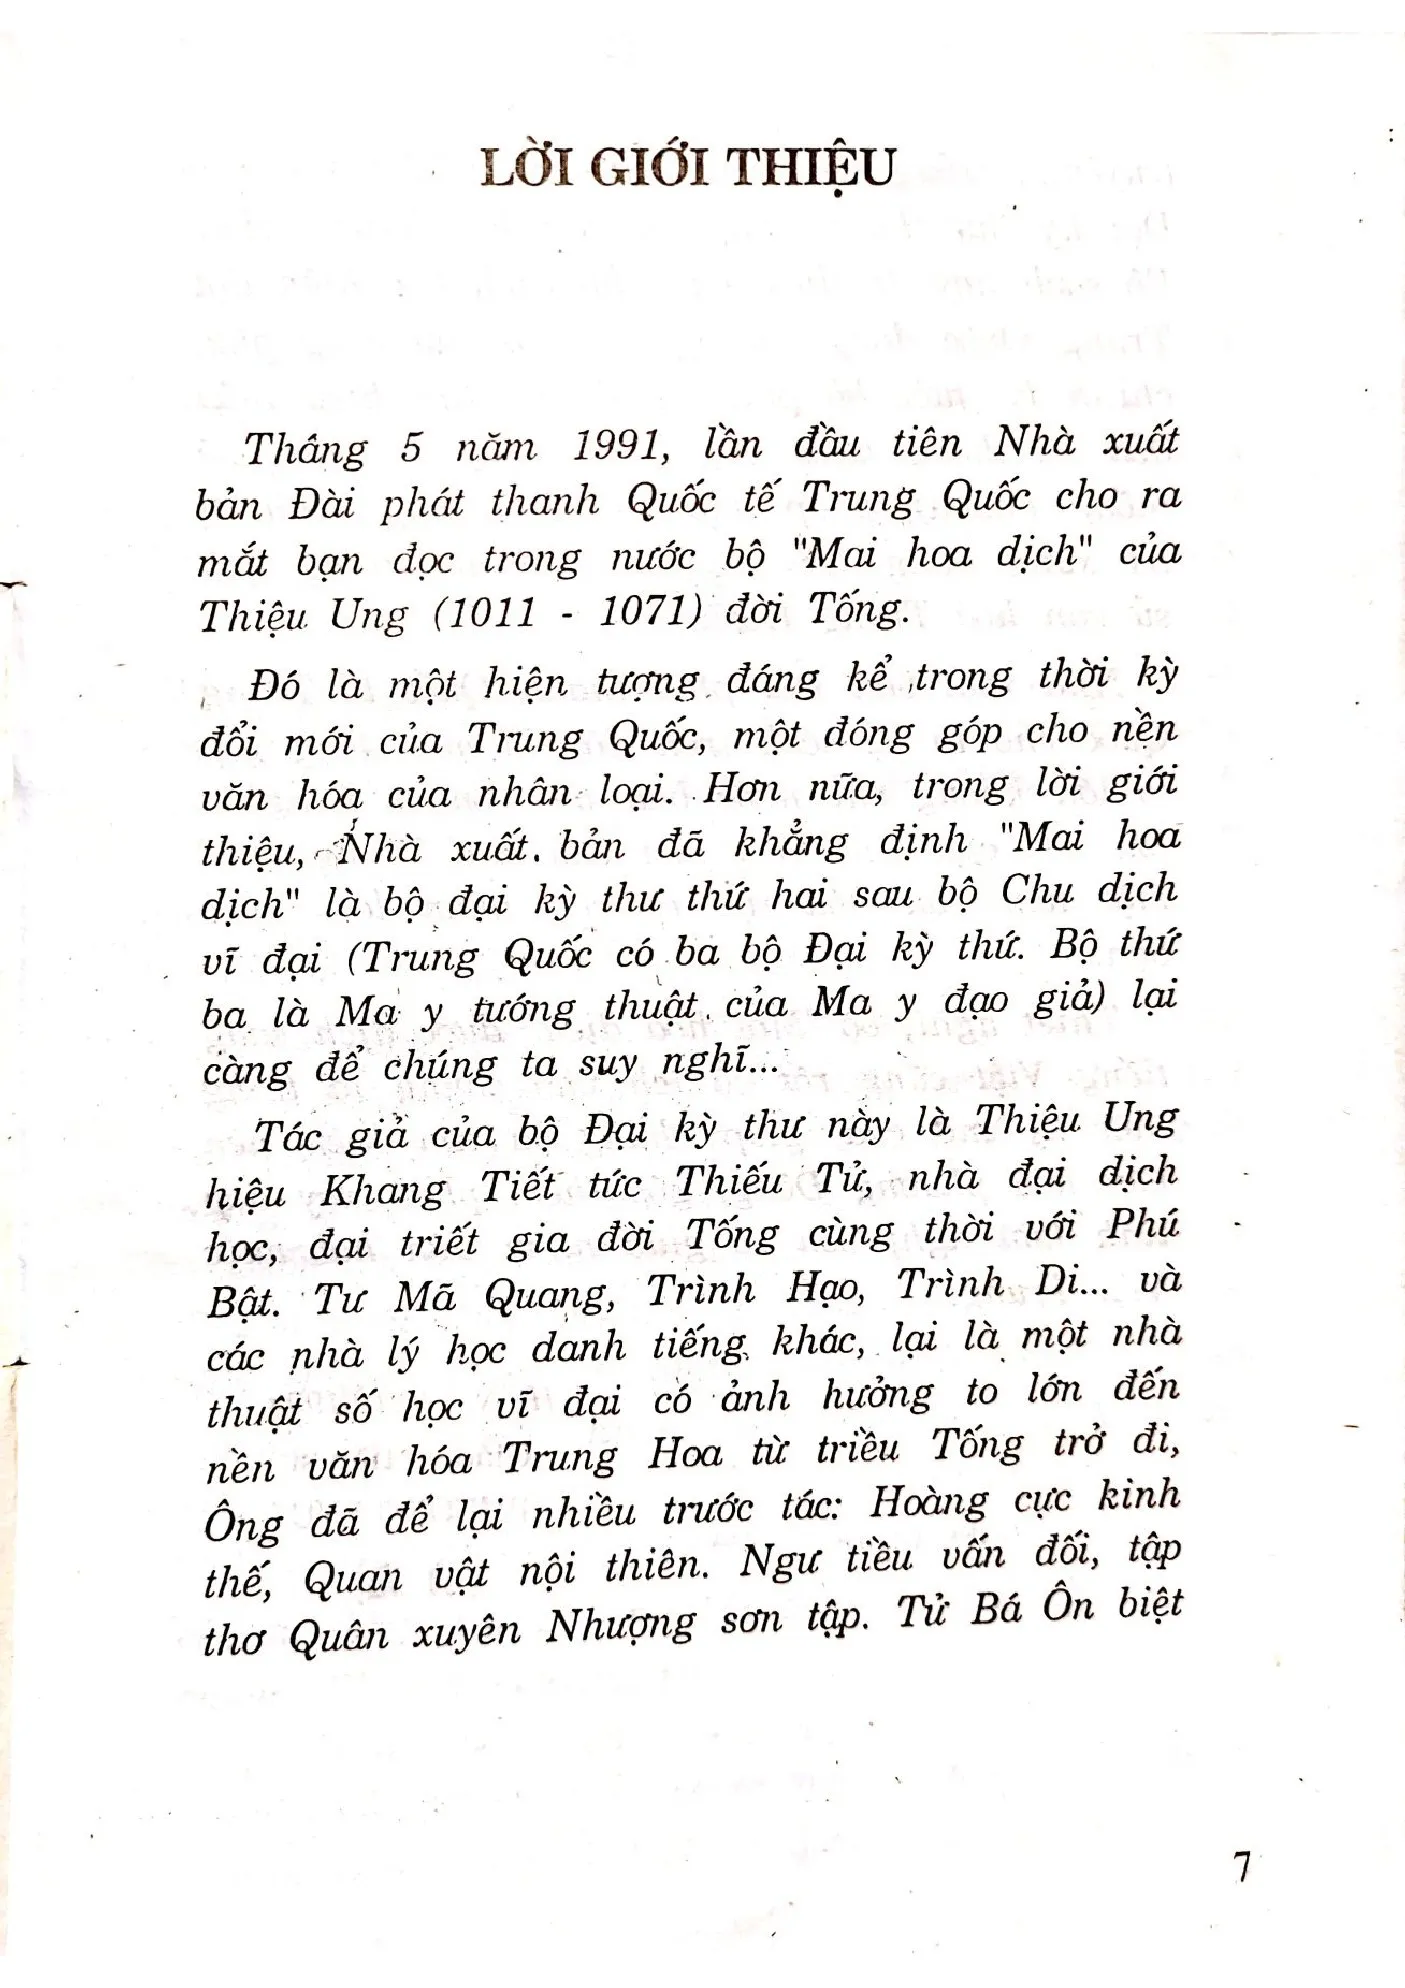 LỜI GIỚI THIỆU
Tháng 5 năm 1991, lần đầu tiên Nhà xuất
bản Đài phát thanh Quốc tế Trung Quốc cho ra
mắt bạn đọc trong nước bộ "Mai hoa dịch" của
Thiệu Ung (1011 - 1071) đời Tống.
Đó là một hiện tượng đáng kể trong thời kỳ
đổi mới của Trung Quốc, một đóng góp cho nền
văn hóa của nhân loại. Hơn nữa, trong lời giới
thiệu, Nhà xuất bản đã khẳng định "Mai hoa
dịch" là bộ đại kỳ thư thứ hai sau bộ Chu dịch
vĩ đại (Trung Quốc có ba bộ Đại kỳ thứ. Bộ thứ
ba là Ma y tướng thuật của Ma y đạo giả) lại
càng để chúng ta suy nghĩ...
Tác giả của bộ Đại kỳ thư này là Thiệu Ung
hiệu Khang Tiết tức Thiếu Tử, nhà đại dịch
học, đại triết gia đời Tống cùng thời với Phú
Bật. Tư Mã Quang, Trình Hạo, Trình Di... và
các nhà lý học danh tiếng khác, lại là một nhà
thuật số học vĩ đại có ảnh hưởng to lớn đến
nền văn hóa Trung Hoa từ triều Tống trở đi,
Ông đã để lại nhiều trước tác: Hoàng cực kinh
thế, Quan vật nội thiên. Ngư tiều vấn đối, tập
thơ Quân xuyên Nhượng sơn tập. Tử Bá Ôn biệt
7